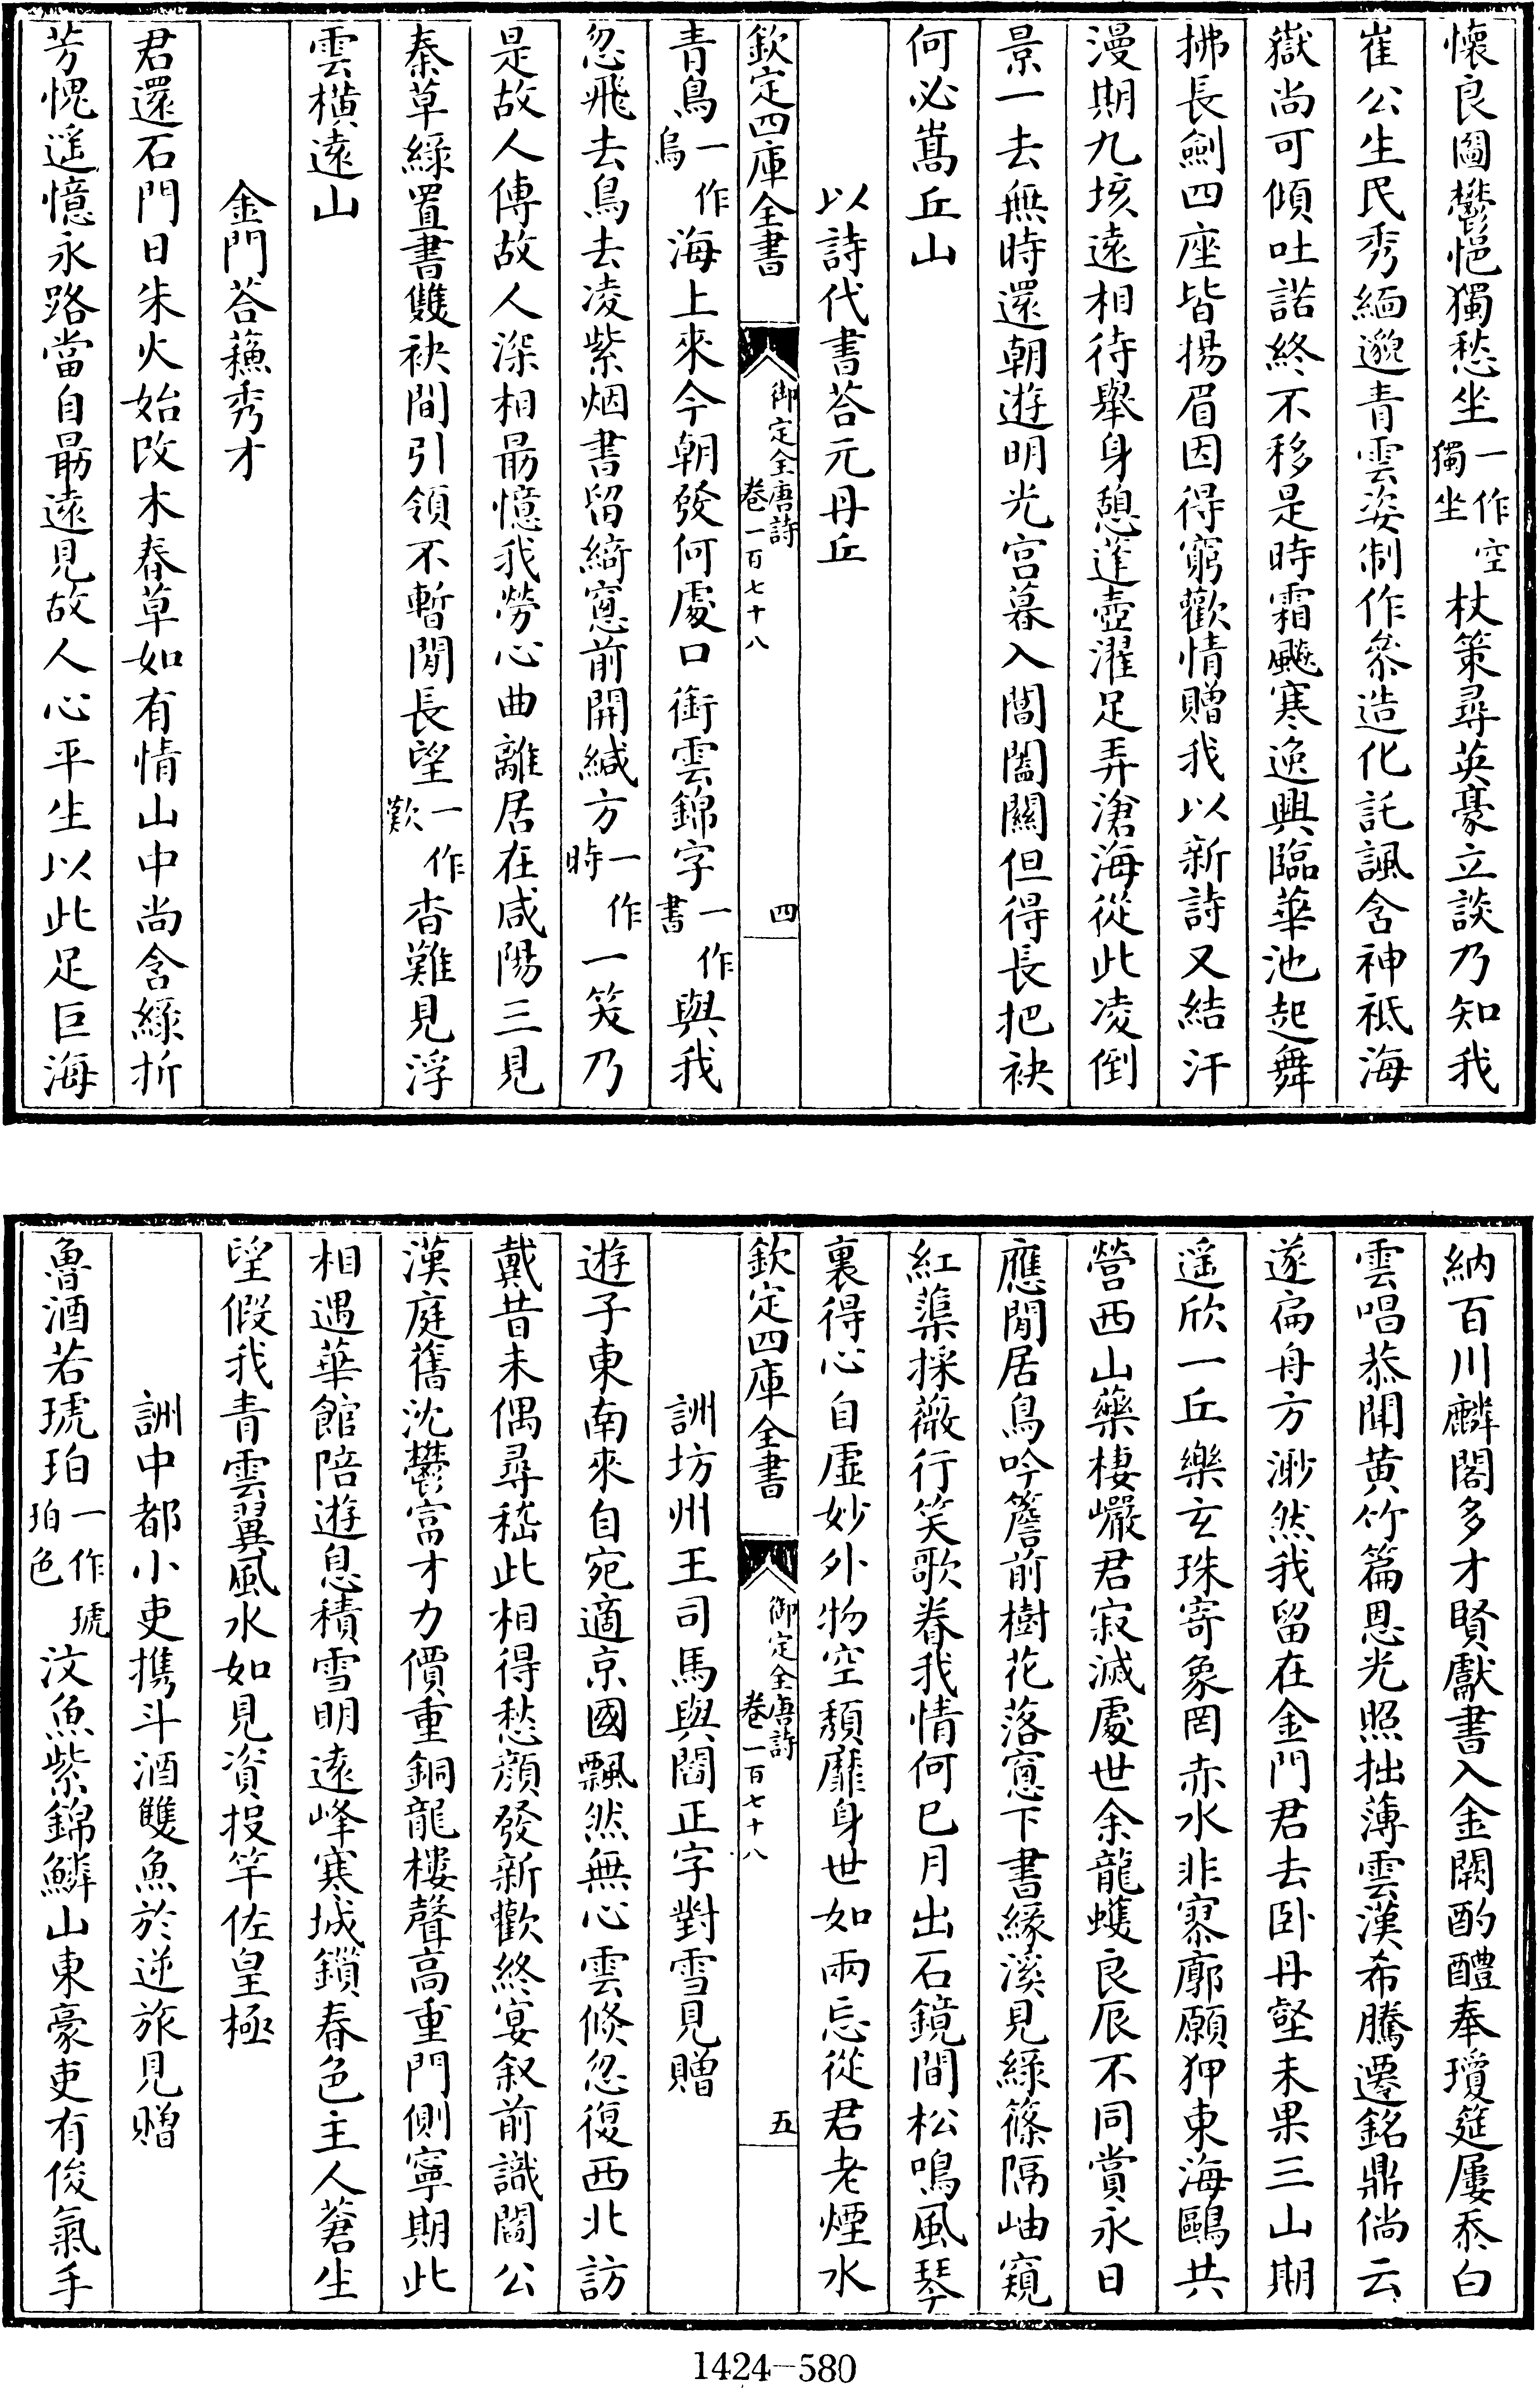 懷良圖鬱悒獨愁坐一作空獨坐杖策尋英豪立談乃知我
崔公生民秀緬邈青雲姿制作參造化託諷含神祇海
嶽尚可傾吐諾終不移是時霜飈寒逸興臨華池起舞
拂長劒四座皆揚眉因得窮歡情贈我以新詩又結汗
漫期九垓遠相待舉身憩蓬壺濯足弄滄海從此凌倒
景一去無時還朝遊明光宮暮入閶闔關但得長把袂
何必嵩丘山
以詩代書荅元丹丘
欽定四庫全書 御定全唐詩 卷一百七十八 四
青鳥一作烏海上來今朝發何處口銜雲錦字一作書與我
忽飛去鳥去凌紫烟書留綺窻前開緘方一作時一笑乃
是故人傳故人深相勗憶我勞心曲離居在咸陽三見
秦草綠置書雙袂間引領不暫閒長望一作歎杳難見浮
雲橫遠山
金門荅蘓秀才
君還石門日朱火始改木春草如有情山中尚含綠折
芳愧遥憶永路當自勗遠見故人心平生以此足巨海
納百川麟閣多才賢獻書入金闕酌醴奉瓊筵屢忝白
雲唱恭聞黄竹篇恩光照拙薄雲漢希騰遷銘鼎倘云
遂扁舟方渺然我留在金門君去卧丹壑未果三山期
遥欣一丘樂玄珠寄象罔赤水非寥廓願狎東海鷗共
營西山藥棲巖君寂滅處世余龍蠖良辰不同賞永日
應閒居鳥吟簷前樹花落窻下書緣溪見綠篠隔岫窺
紅蕖採薇行笑歌眷我情何已月出石鏡間松鳴風琴
裏得心自虛妙外物空頹靡身世如兩忘從君老煙水
欽定四庫全書 御定全唐詩 卷一百七十八 五
詶坊州王司馬與閻正字對雪見贈
遊子東南來自宛適京國飄然無心雲倏忽復西北訪
戴昔未偶尋嵇此相得愁顏發新歡終宴叙前識閻公
漢庭舊沈鬱富才力價重銅龍樓聲高重門側寧期此
相遇華館陪遊息積雪明遠峰寒城鎖春色主人蒼生
望假我青雲翼風水如見資投竿佐皇極
詶中都小吏携斗酒雙魚於逆旅見贈
魯酒若琥珀一作琥珀色汶魚紫錦鱗山東豪吏有俊氣手
1424-580